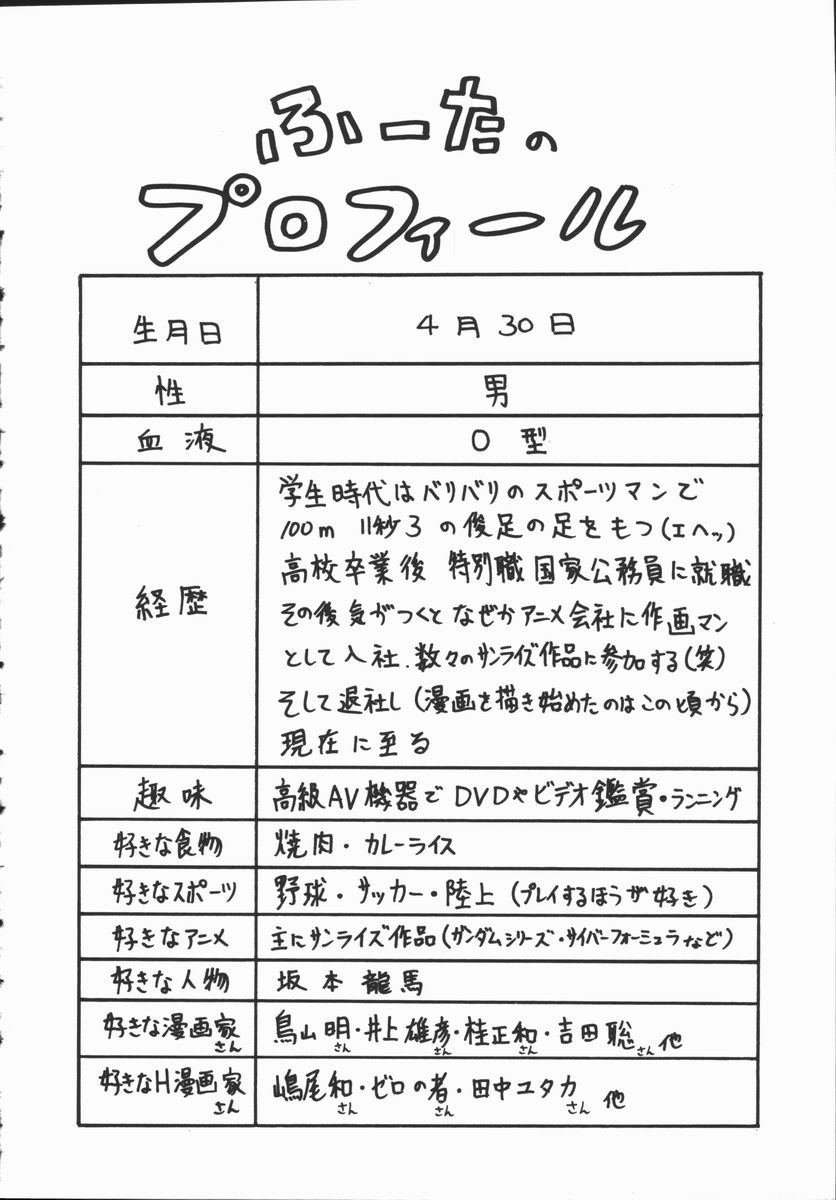 ふーたの
プロフィール
生月日 4月30日
性 男
血液 O型
経歴
学生時代はバリバリのスポーツマンで
100m 11秒3の俊足の足をもつ(エヘッ)
高校卒業後 特別職国家公務員に就職
その後気がつくとなぜかアニメ会社に作画マン
として入社.数々のサンライズ作品に参加する(笑)
そして退社し(漫画を描き始めたのはこの頃から)
現在に至る
趣味 高級AV機器でDVDやビデオ鑑賞・ランニング
好きな食物 焼肉・カレーライス
好きなスポーツ 野球・サッカー・陸上(プレイするほうが好き)
好きなアニメ 主にサンライズ作品(ガンダムシリーズ・サイバーフォーミュラなど)
好きな人物 坂本龍馬
好きな漫画家さん 鳥山明さん・井上雄彦さん・桂正和さん・吉田聡さん他
好きなH漫画家さん 嶋尾和さん・ゼロの者さん・田中ユタカさん他